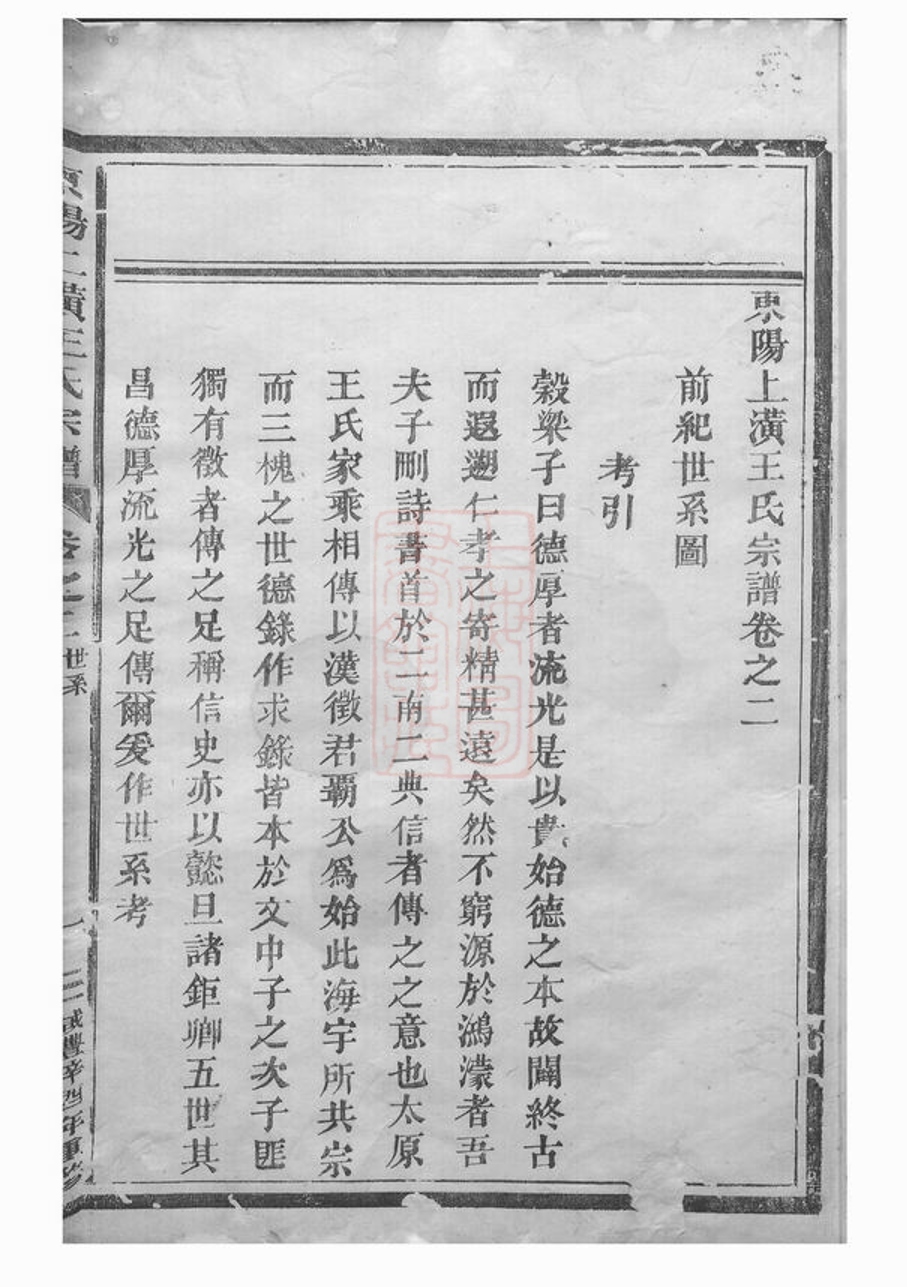 東陽上潢王氏宗譜卷之二
前紀世系圖
考引
穀梁子曰德厚者流光是以貴始德之本故闡終古
而遐遡仁孝之寄精甚遠矣然不窮源於鴻濛者吾
夫子刪詩書首於二南二典信者傳之之意也太原
王氏家乘相傳以漢徵君霸公爲始此海宇所共宗
而三槐之世德錄作求錄皆本於文中子之次子匪
獨有徵者傳之足稱信史亦以懿旦諸鉅卿五世其
昌德厚流光之足傳爾爰作世系考
東陽上潢王氏宗譜
卷之二世系
一
咸豐辛酉年重修